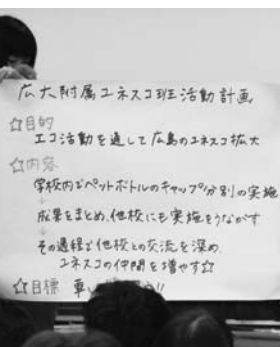 広大附属ユネスコ班活動計画
☆目的
エコ活動を通して広島のユネスコ拡大
☆内容
学校内でペットボトルのキャップ分別の実施
↓
成果をまとめ、他校にも実施をうながす
↓
その過程で他校との交流を深め、
ユネスコの仲間を増やす☆
☆目標